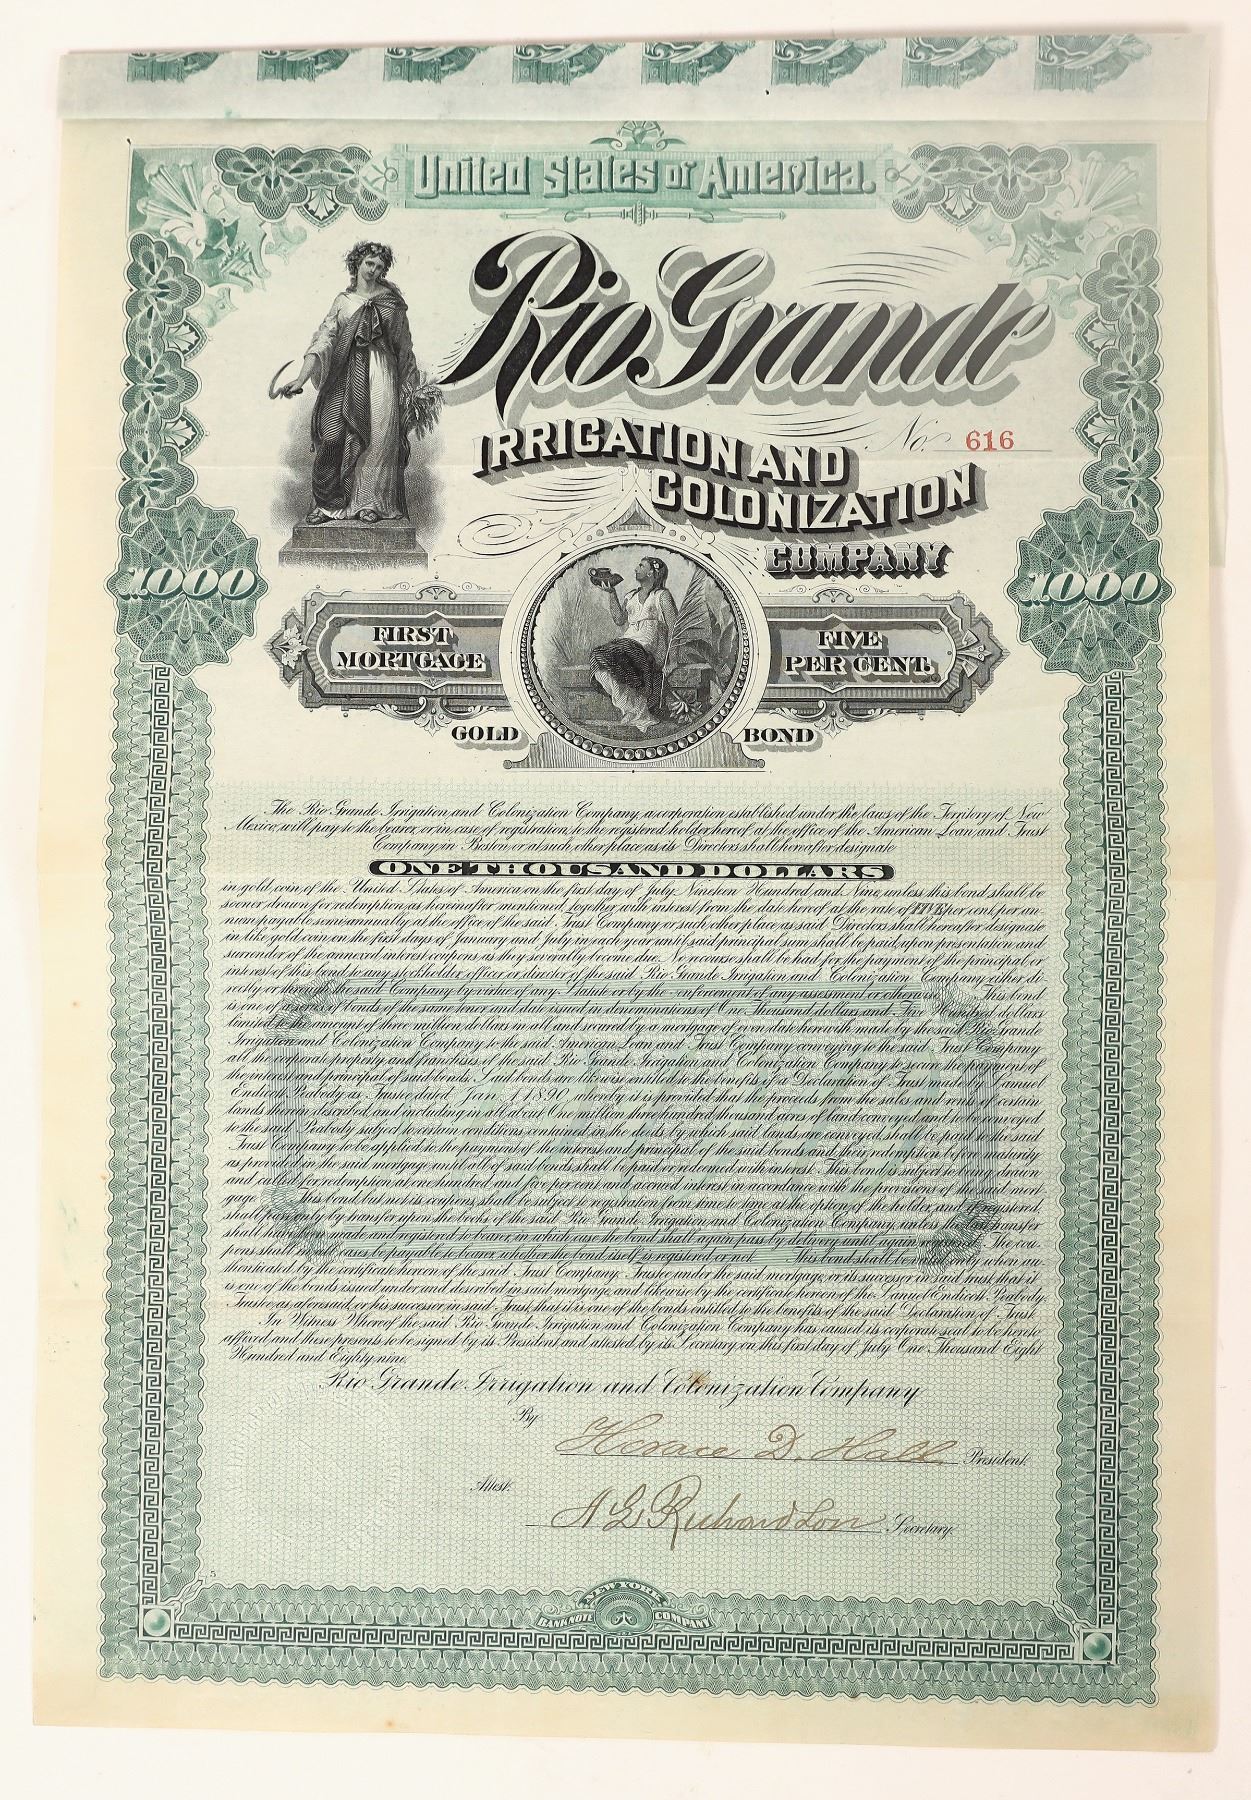 United States of America.
Rio Grande
No. 616
IRRIGATION AND
COLONIZATION
COMPANY
1000
1000
FIRST
MORTGAGE
FIVE
PER CENT.
GOLD
BOND
The Rio Grande Irrigation and Colonization Company, a corporation established under the laws of the Territory of New
Mexico, will pay to the bearer, or in case of registration, to the registered holder hereof at the office of the American Loan and Trust
Company in Boston or at such other place as its Directors shall hereafter designate
ONE THOUSAND DOLLARS
in gold coin of the United States of America on the first day of July, Nineteen Hundred and Nine, unless this bond shall be
sooner drawn for redemption as hereinafter mentioned, together with interest from the date hereof at the rate of FIVE per cent. per an-
num payable semi-annually at the office of the said Trust Company or such other place as said Directors shall hereafter designate
in like gold coin on the first days of January and July in each year until said principal sum shall be paid, upon presentation and
surrender of the annexed interest coupons as they severally become due. No recourse shall be had for the payment of the principal or
interest of this bond to any stockholder, officer or director of the said Rio Grande Irrigation and Colonization Company either di-
rectly or through the said Company by virtue of any Statute or by the enforcement of any assessment or otherwise. This bond
is one of a series of bonds of the same tenor and date issued in denominations of One Thousand dollars and Five Hundred dollars
limited to the amount of three million dollars in all and secured by a mortgage of even date herewith made by the said Rio Grande
Irrigation and Colonization Company to the said American Loan and Trust Company conveying to the said Trust Company
all the corporate property and franchises of the said Rio Grande Irrigation and Colonization Company to secure the payment of
the interest and principal of said bonds. Said bonds are likewise entitled to the benefits of a Declaration of Trust made by Samuel
Endicott Peabody as Trustee dated Jan 1 1890, whereby it is provided that the proceeds from the sales and rents of certain
lands therein described, and including in all about One million three hundred thousand acres of land conveyed and to be conveyed
to the said Peabody subject to certain conditions contained in the deeds by which said lands are conveyed, shall be paid to the said
Trust Company to be applied to the payment of the interest and principal of the said bonds and their redemption before maturity
as provided in the said mortgage until all of said bonds shall be paid or redeemed with interest. This bond is subject to being drawn
and called for redemption at one hundred and five per cent and accrued interest in accordance with the provisions of the said mort-
gage. This bond, but not its coupons, shall be subject to registration from time to time at the option of the holder, and if registered,
shall pass only by transfer upon the books of the said Rio Grande Irrigation and Colonization Company, unless the last transfer
shall have been made and registered to bearer, in which case the bond shall again pass by delivery until again registered. The cou-
pons shall in all cases be payable to bearer, whether the bond itself is registered or not. This bond shall be valid only when au-
thenticated by the certificate hereon of the said Trust Company, Trustee under the said mortgage, or its successor in said trust, that it
is one of the bonds issued under and described in said mortgage, and likewise by the certificate hereon of the Samuel Endicott Peabody
Trustee as aforesaid, or his successor in said Trust, that it is one of the bonds entitled to the benefits of the said Declaration of Trust.
In Witness Whereof the said Rio Grande Irrigation and Colonization Company has caused its corporate seal to be hereto
affixed and these presents to be signed by its President and attested by its Secretary on this first day of July One Thousand Eight
Hundred and Eighty nine.
Rio Grande Irrigation and Colonization Company
By
Horace D. Hall President.
Attest.
A L Richardson Secretary.
5
NEW YORK
BANKNOTE COMPANY